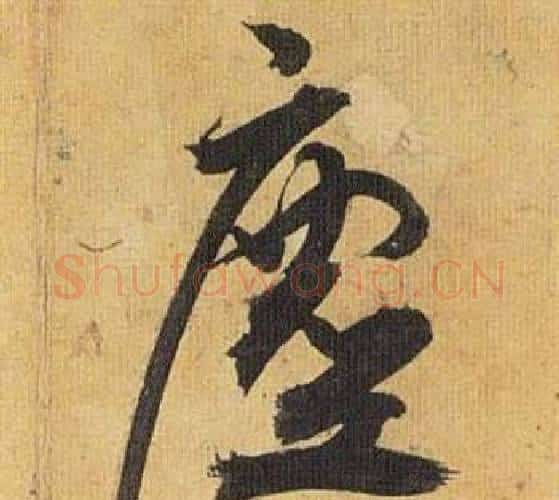 塵
Shufawang.CN